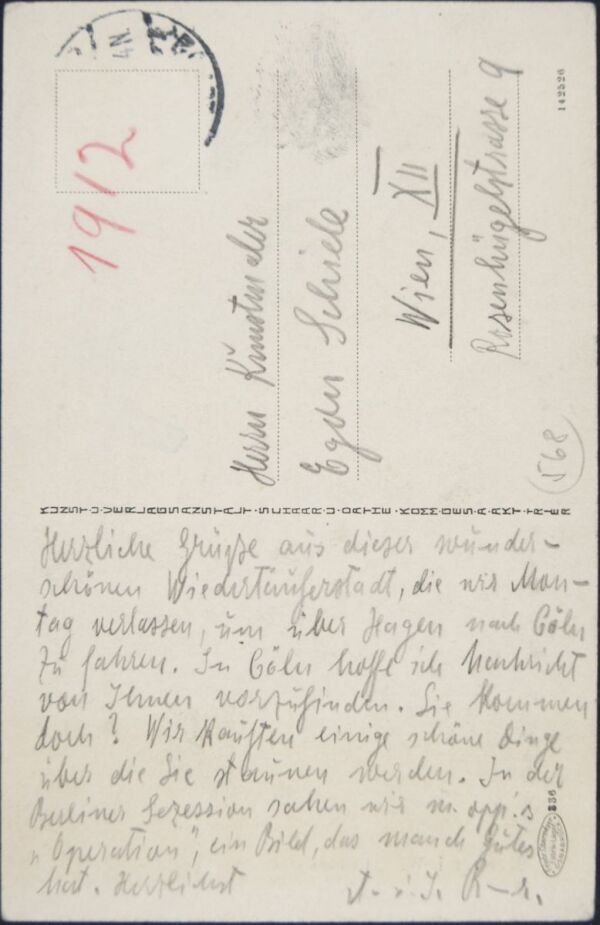 4N.
1912
Herrn Kunstmaler
Egon Schiele
Wien, XII
Rosenhügelstrasse 9
142526
568
KUNST-U-VERLAGSANSTALT-SCHAAR-U-DATHE-KOMM-GES-A-AKT-TRIER
Herzliche Grüße aus dieser wunder-
schönen Wiedertäuferstadt, die wir Mon-
tag verlassen, um über Hagen nach Cöln
zu fahren. In Cöln hoffe ich Nachricht
von Ihnen vorzufinden. Sie kommen
doch? Wir kauften einige schöne Dinge
über die Sie staunen werden. In der
Berliner Sezession sahen wir m. opp.'s
"Operation", ein Bild, das manch Gutes
hat. Herzlichst
R-r.
336